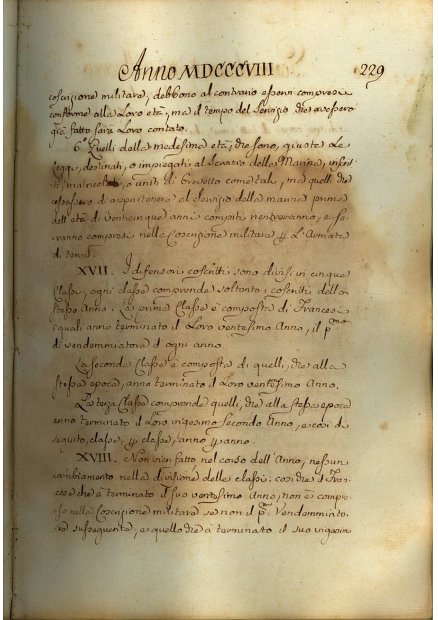 Anno MDCCCVIII 229
coscrizione militare, debbono al contrario esservi compresi
conforme alla Loro età, ma il tempo del Servizio che avessero
già fatto sarà Loro contato.
6.° Quelli della medesima età, che sono, giusta Le
Leggi, destinati, o impiegati al Servizio della Marina, inscritti
matricolati, o uniti di brevetto come tali, ma quelli che
cessassero di appartenere al Servizio della marina prima
dell'età di venticinque anni compiti rientreranno, e sa-
ranno compresi nella Coscrizione militare p. L'Armata
di terra.
XVII. I difensori coscritti sono divisi in cinque
Classi, ogni classe comprende soltanto i coscritti dello
stesso Anno. La prima Classe è composta di Francesi
i quali anno terminato il Loro ventesimo Anno, il p.mo
di vendemmiatore d'ogni anno
La seconda Classe è composta di quelli, che alla
stessa epoca, anno terminato il Loro ventesimo Anno.
La terza Classe comprende quelli, che alla stessa epoca
anno terminato il Loro vigesimo Secondo Anno, e così di
seguito, classe, p. classe, anno p. anno.
XVIII. Non vien fatto nel corso dell'Anno, nessun
cambiamento nella divisione delle classi: così che il Fran-
cese che à terminato il suo ventesimo Anno, non è compre-
so nella Coscrizione militare se non il p.° Vendemmiato-
re susseguente, e quello che à terminato il suo vigesim